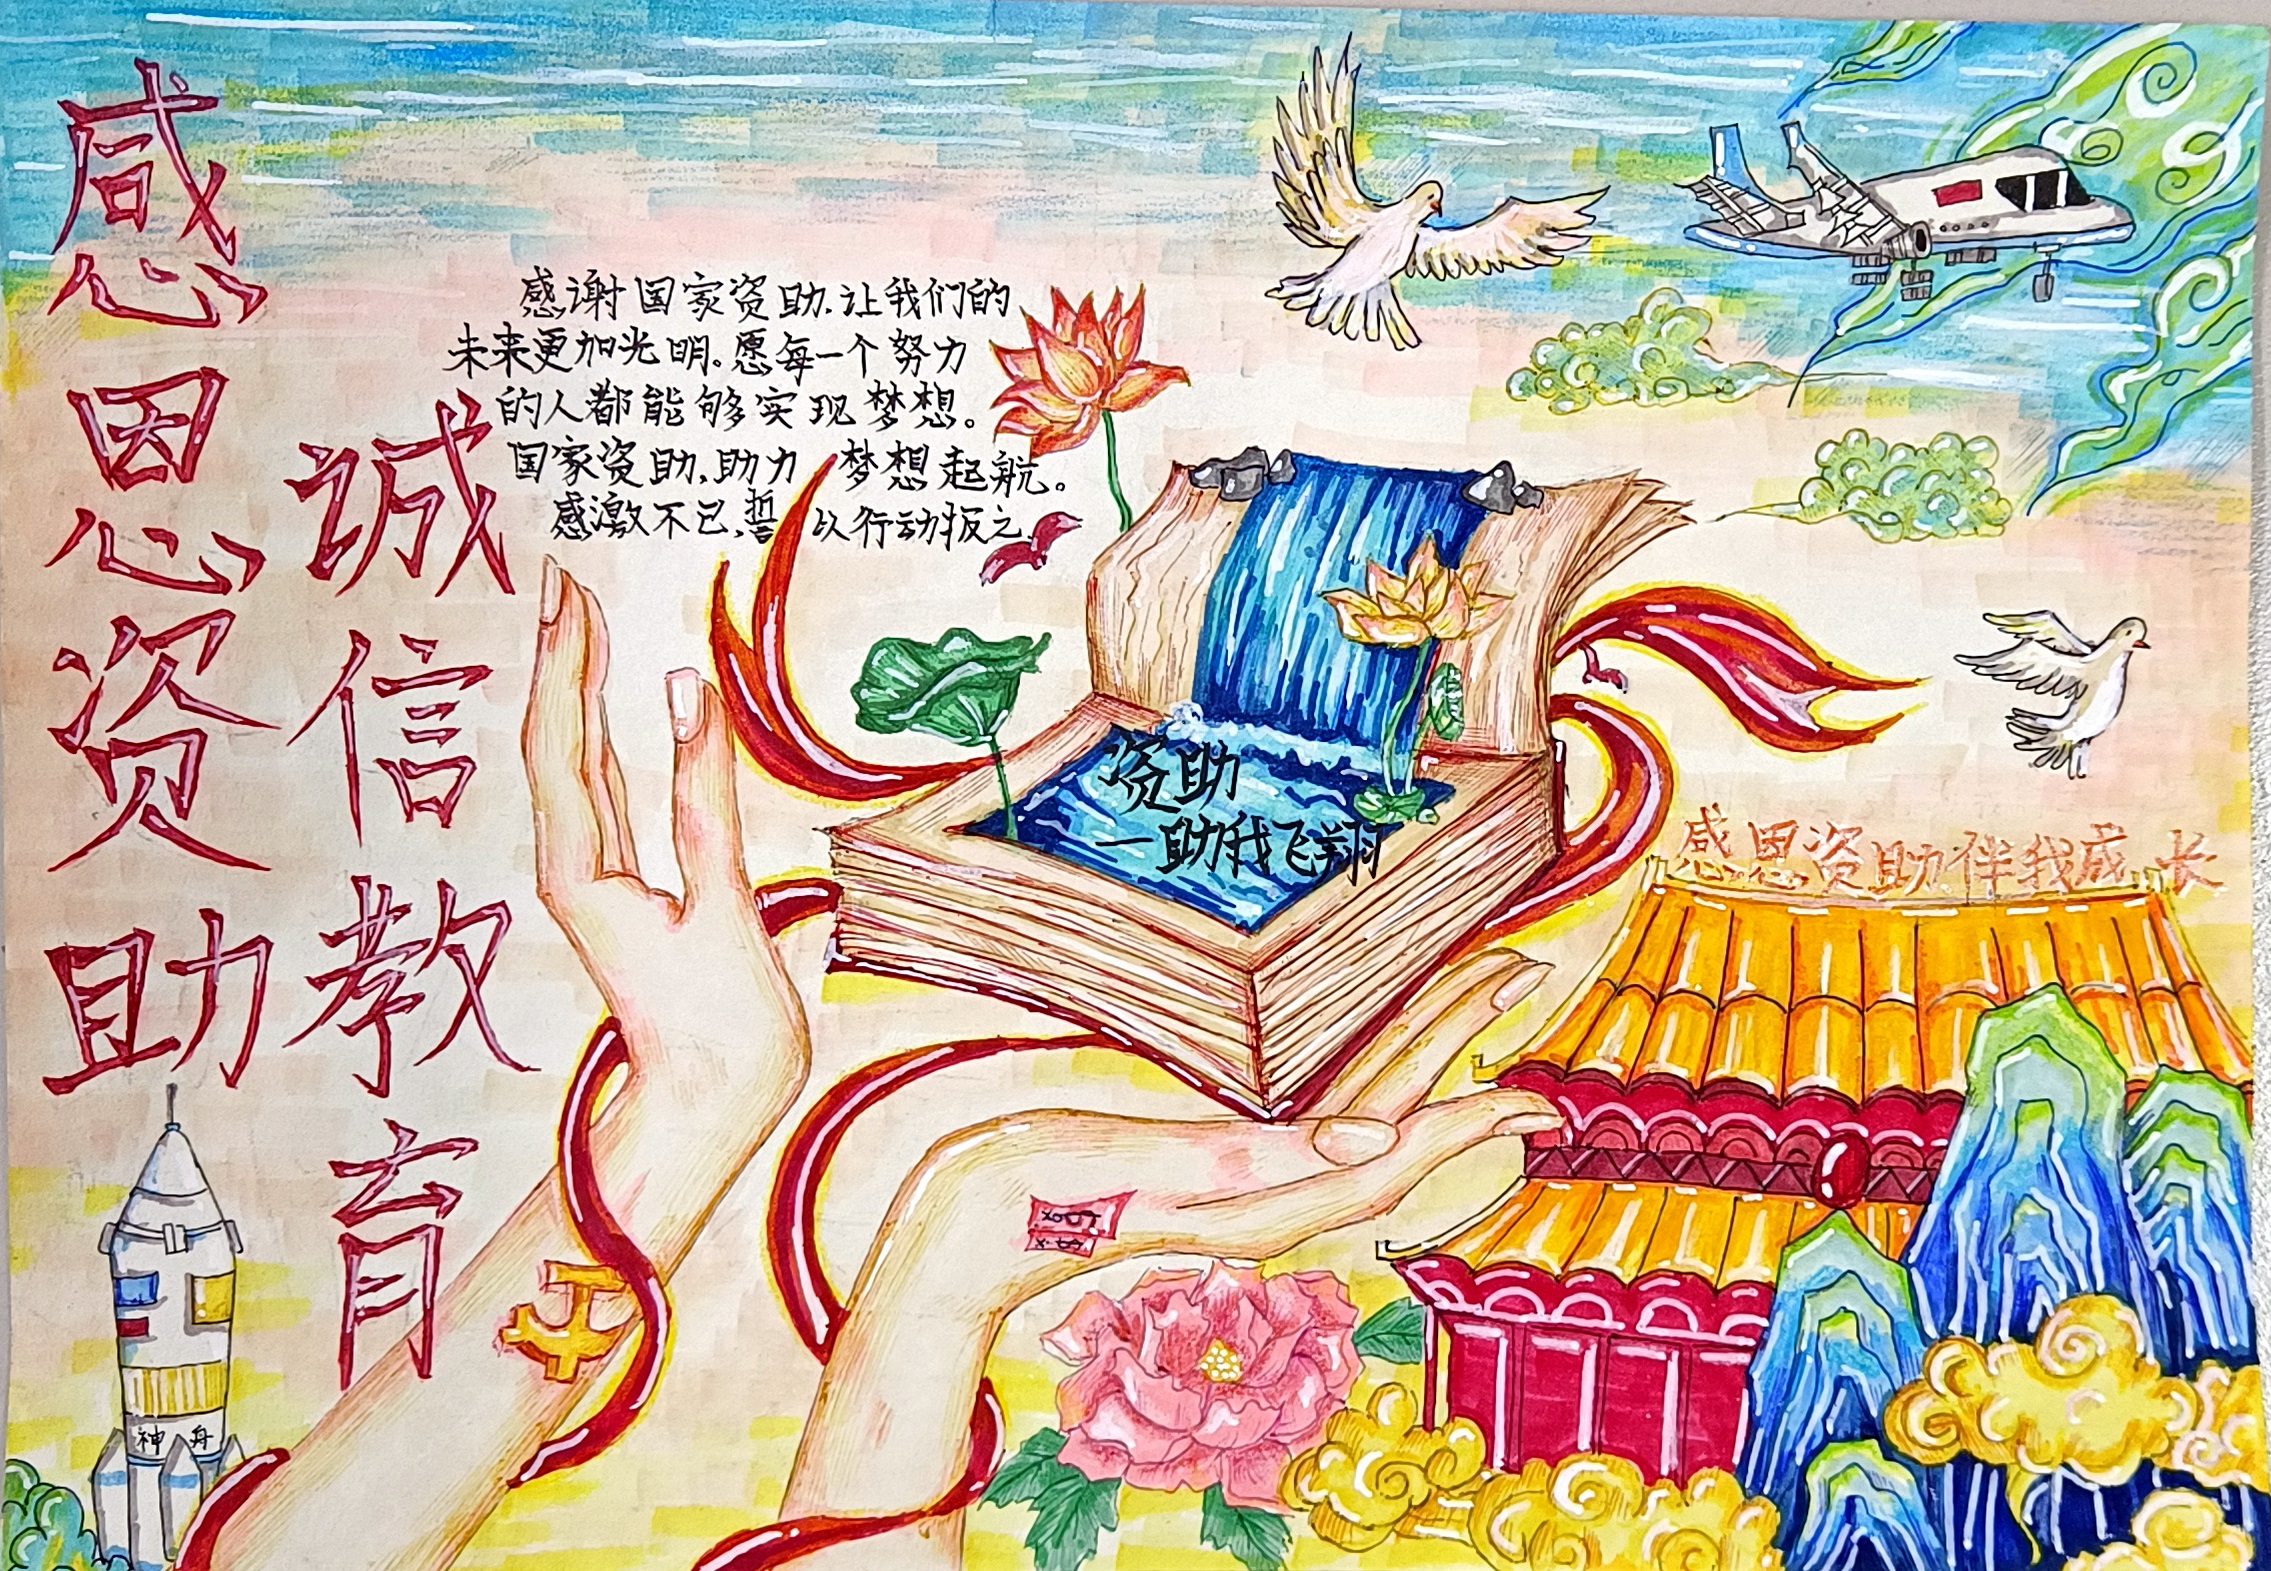 感恩资助
诚信教育
感谢国家资助,让我们的
未来更加光明。愿每一个努力
的人都能够实现梦想。
国家资助,助力 梦想起航。
感激不已,誓 以行动报之.
资助
一助我飞翔
感恩资助伴我成长
神舟